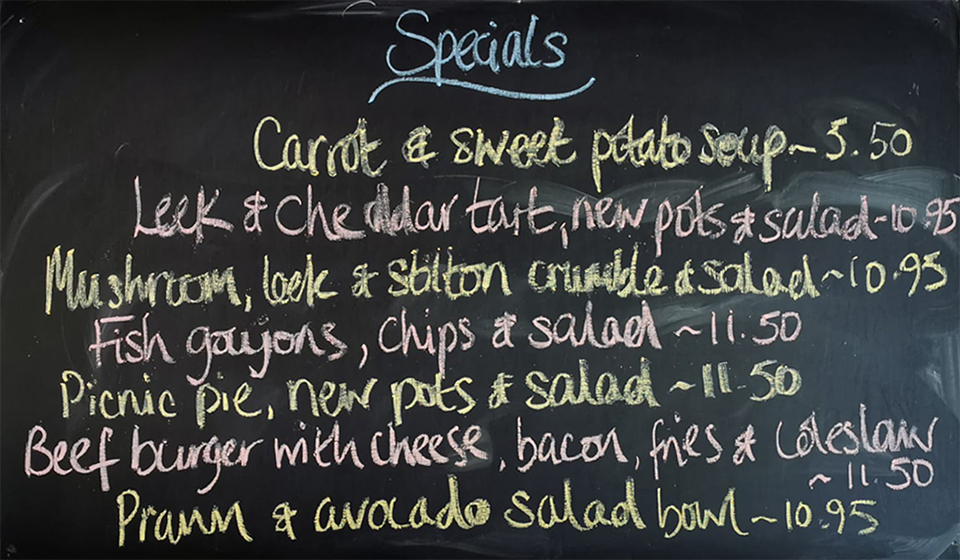 Specials
Carrot & sweet potato soup ~ 5.50
Leek & cheddar tart, new pots & salad ~ 10.95
Mushroom, leek & stilton crumble & salad ~ 10.95
Fish goujons, chips & salad ~ 11.50
Picnic pie, new pots & salad ~ 11.50
Beef burger with cheese, bacon, fries & coleslaw
~ 11.50
Prawn & avocado salad bowl ~ 10.95